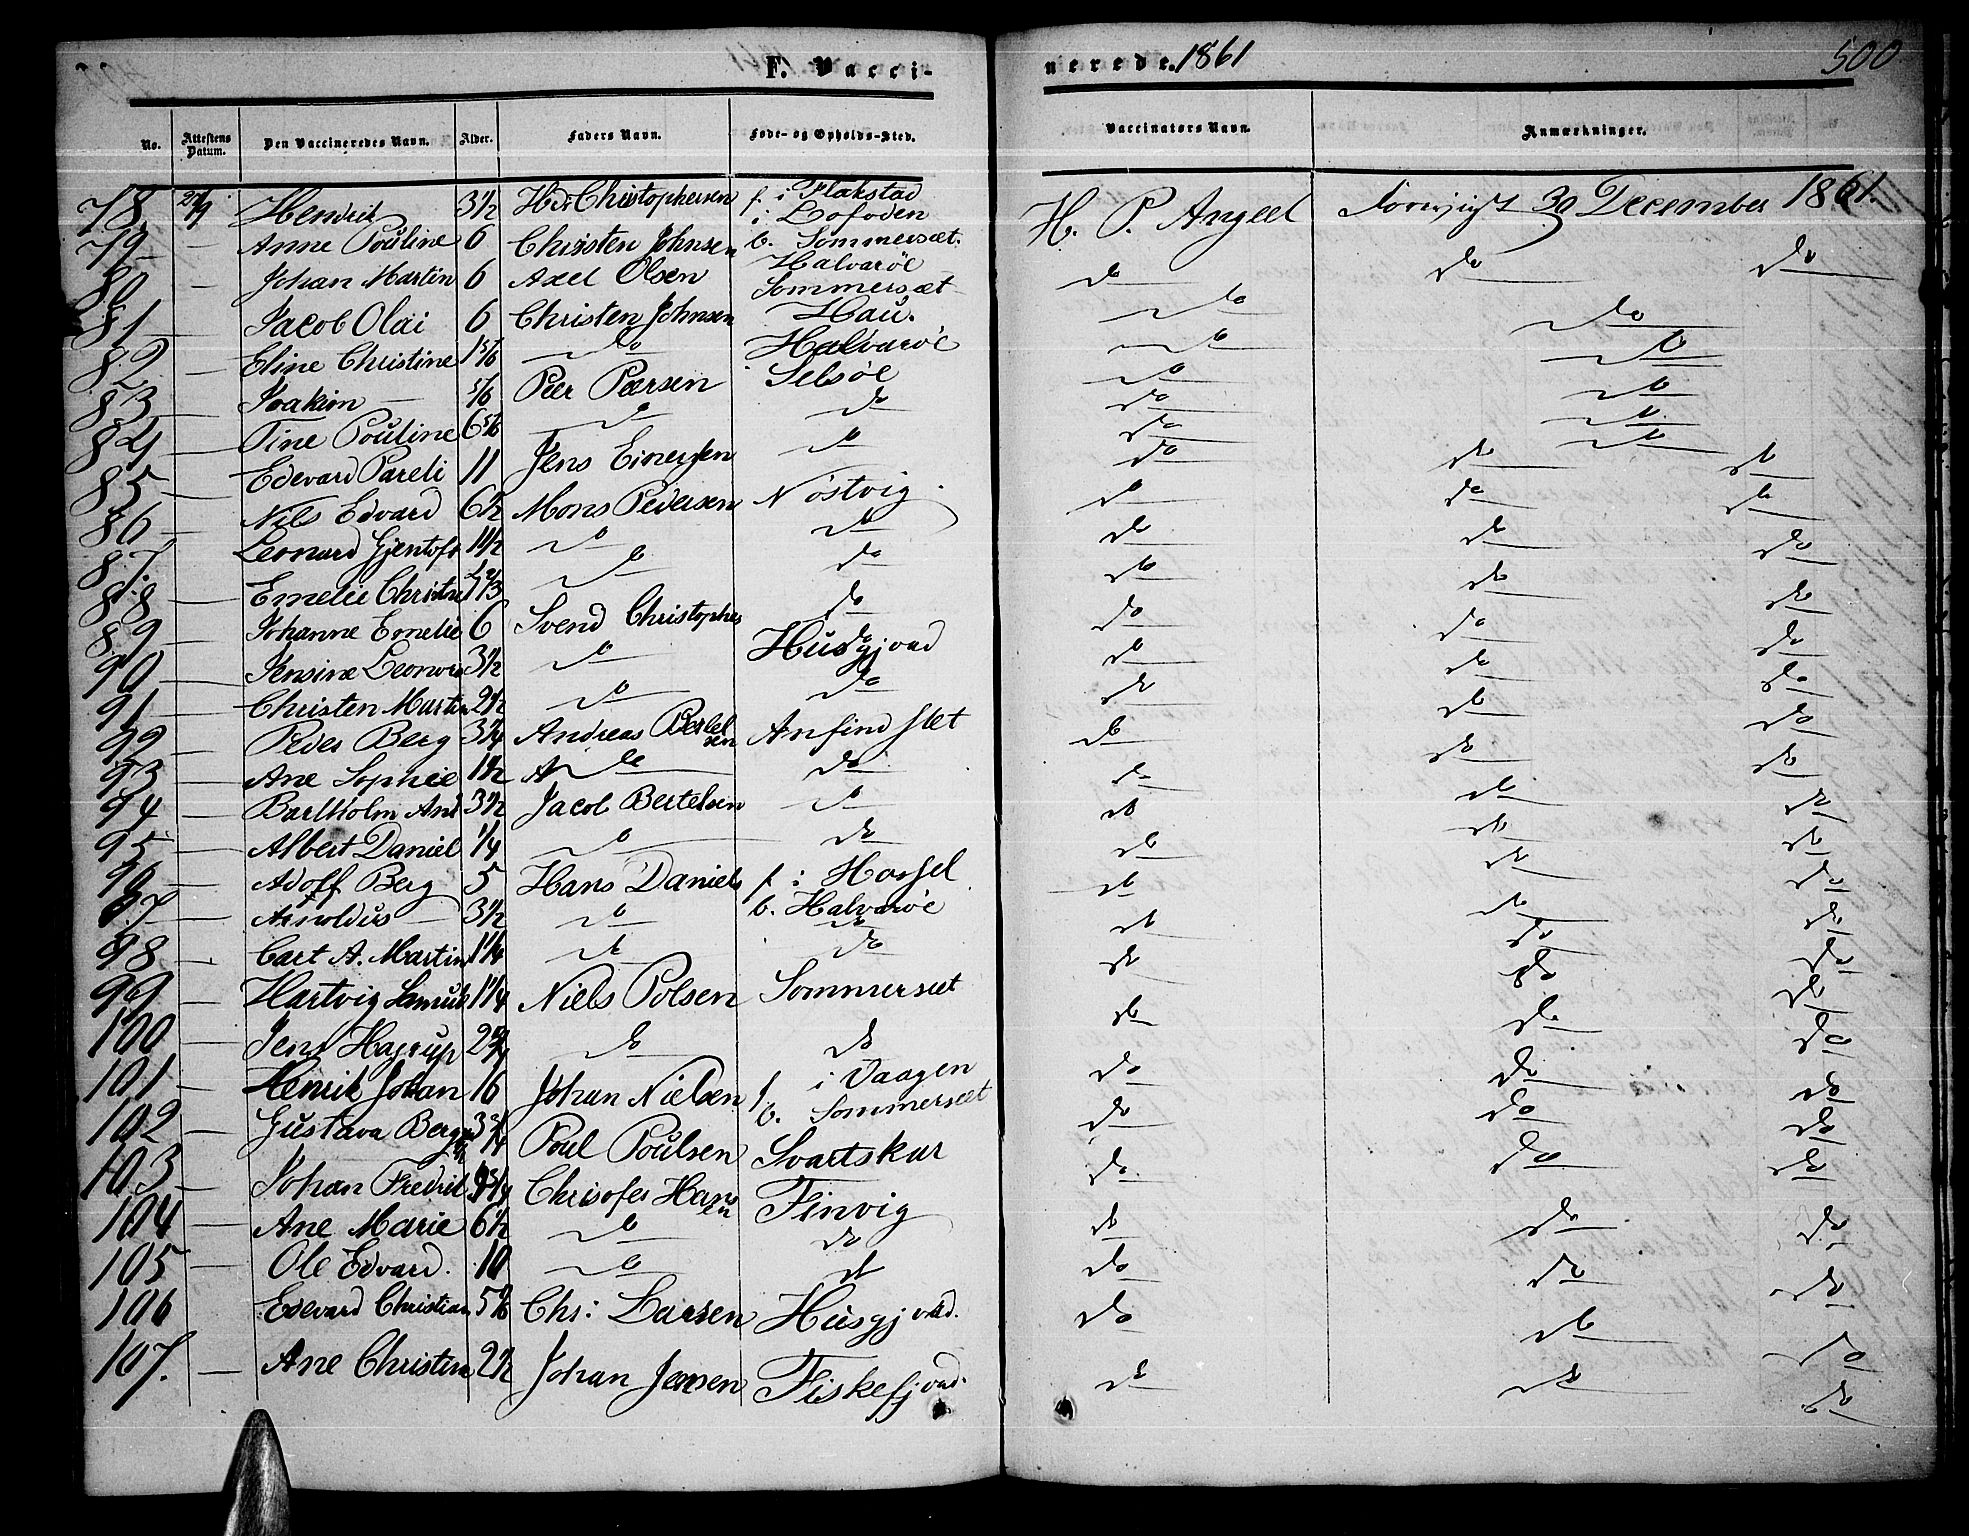 F. Vacci-
nerede. 1861
500
No. Attestens Datum. Den Vaccineredes Navn. Alder. Faders Navn. Føde- og Opholds-Sted. Vaccinators Navn. Anmærkninger.
78. 27/9 Hendrik 3 1/2 Hs: Christophersen f. i Flakstad i Lofoden H. P. Angell forevist 30 December 1861.
79 — Anne Pouline 6 Christen Johnsen b. Sommersæt. do do do
80 — Johan Martin 6 Axel Olsen Halvarøe do do
Sommersæt
81 — Jacob Olai 6 Christen Johnsen Hau. do do
82 — Eline Christine 1 5/6 do Halvarøe do do
83 — Joakim — 5/6 Peer Pærsen Selsøe do do
84 — Tine Pouline 6 5/6 do do do do
85 — Edevard Pareli 11 Jens Einersen do do do do
86 — Nils Edvard 6 1/2 Mons Pedersen Nøstvig do do do
87. — Leonard Gjentoft 1 1/2 do do do do do
88 — Emelie Christine do do do do do
89 — Johanne Emelie 6 Svend Christophes do do do do
90 — Jensine Leonora 3 1/2 do Husgjord do do do
91 — Christen Martin 2 1/2 do do do do do
92 — Peder Berg 3 1/4 Andreas Bertelsen Anfindslet do do do
93 — Ane Sophie 1 1/2 do do do do do
94 — Bartholm And 3 1/2 Jacob Bertelsen do do do do
95 — Albert Daniel 1/4 do do do do do
96 — Adoff Berg 5 Hans Daniels f. i Hassel do do do
97 — Arnoldus — 3 1/2 do b. Halvarøe do do do
98 — Carl A. Martin 1 1/4 do do do do do
99 — Hartvig Samuel 1 1/4 Niels Polsen Sommersæt do do do
100 — Jens Hagrup do do do do do
101 — Henrik Johan 16 Johan Nielsen f. i Vaagen do do do
b. Sommersæt
102 — Gustava Berg Poul Poulsen Svartskar do do do
103 — Johan Fredrik Christofer Hansen Finvig do do do
104 — Ane Marie 6 1/2 do do do do do
105 — Ole Edvard. 10 do do do do do
106 Edevard Christian 5 1/6 Chr: Larsen Husgjord. do do do
107. — Ane Christine 2 1/2 Johan Jensen Fiskefjord. do do do